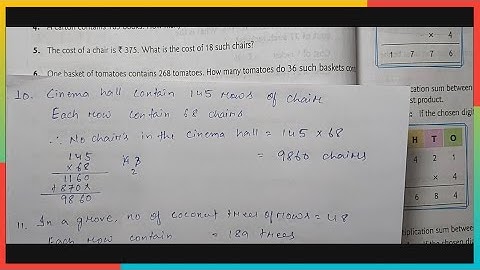 4. A carton contains 185 books. How many
5. The cost of a chair is ₹ 375. What is the cost of 18 such chairs?
6. One basket of tomatoes contains 268 tomatoes. How many tomatoes do 36 such baskets
10. Cinema hall contain 145 rows of chairs
Each row contain 68 chairs
∴ No chairs in the cinema hall = 145 × 68
= 9860 chairs
145
×68
1160
+870×
9860
11. In a grove, no of coconut trees of rows = 48
Each row contain = 189 trees
× 4
1 7 7 6
plication sum between
st product.
: If the chosen digi
H T O
4 2 1
× 4
6 8 4
tiplication sum between